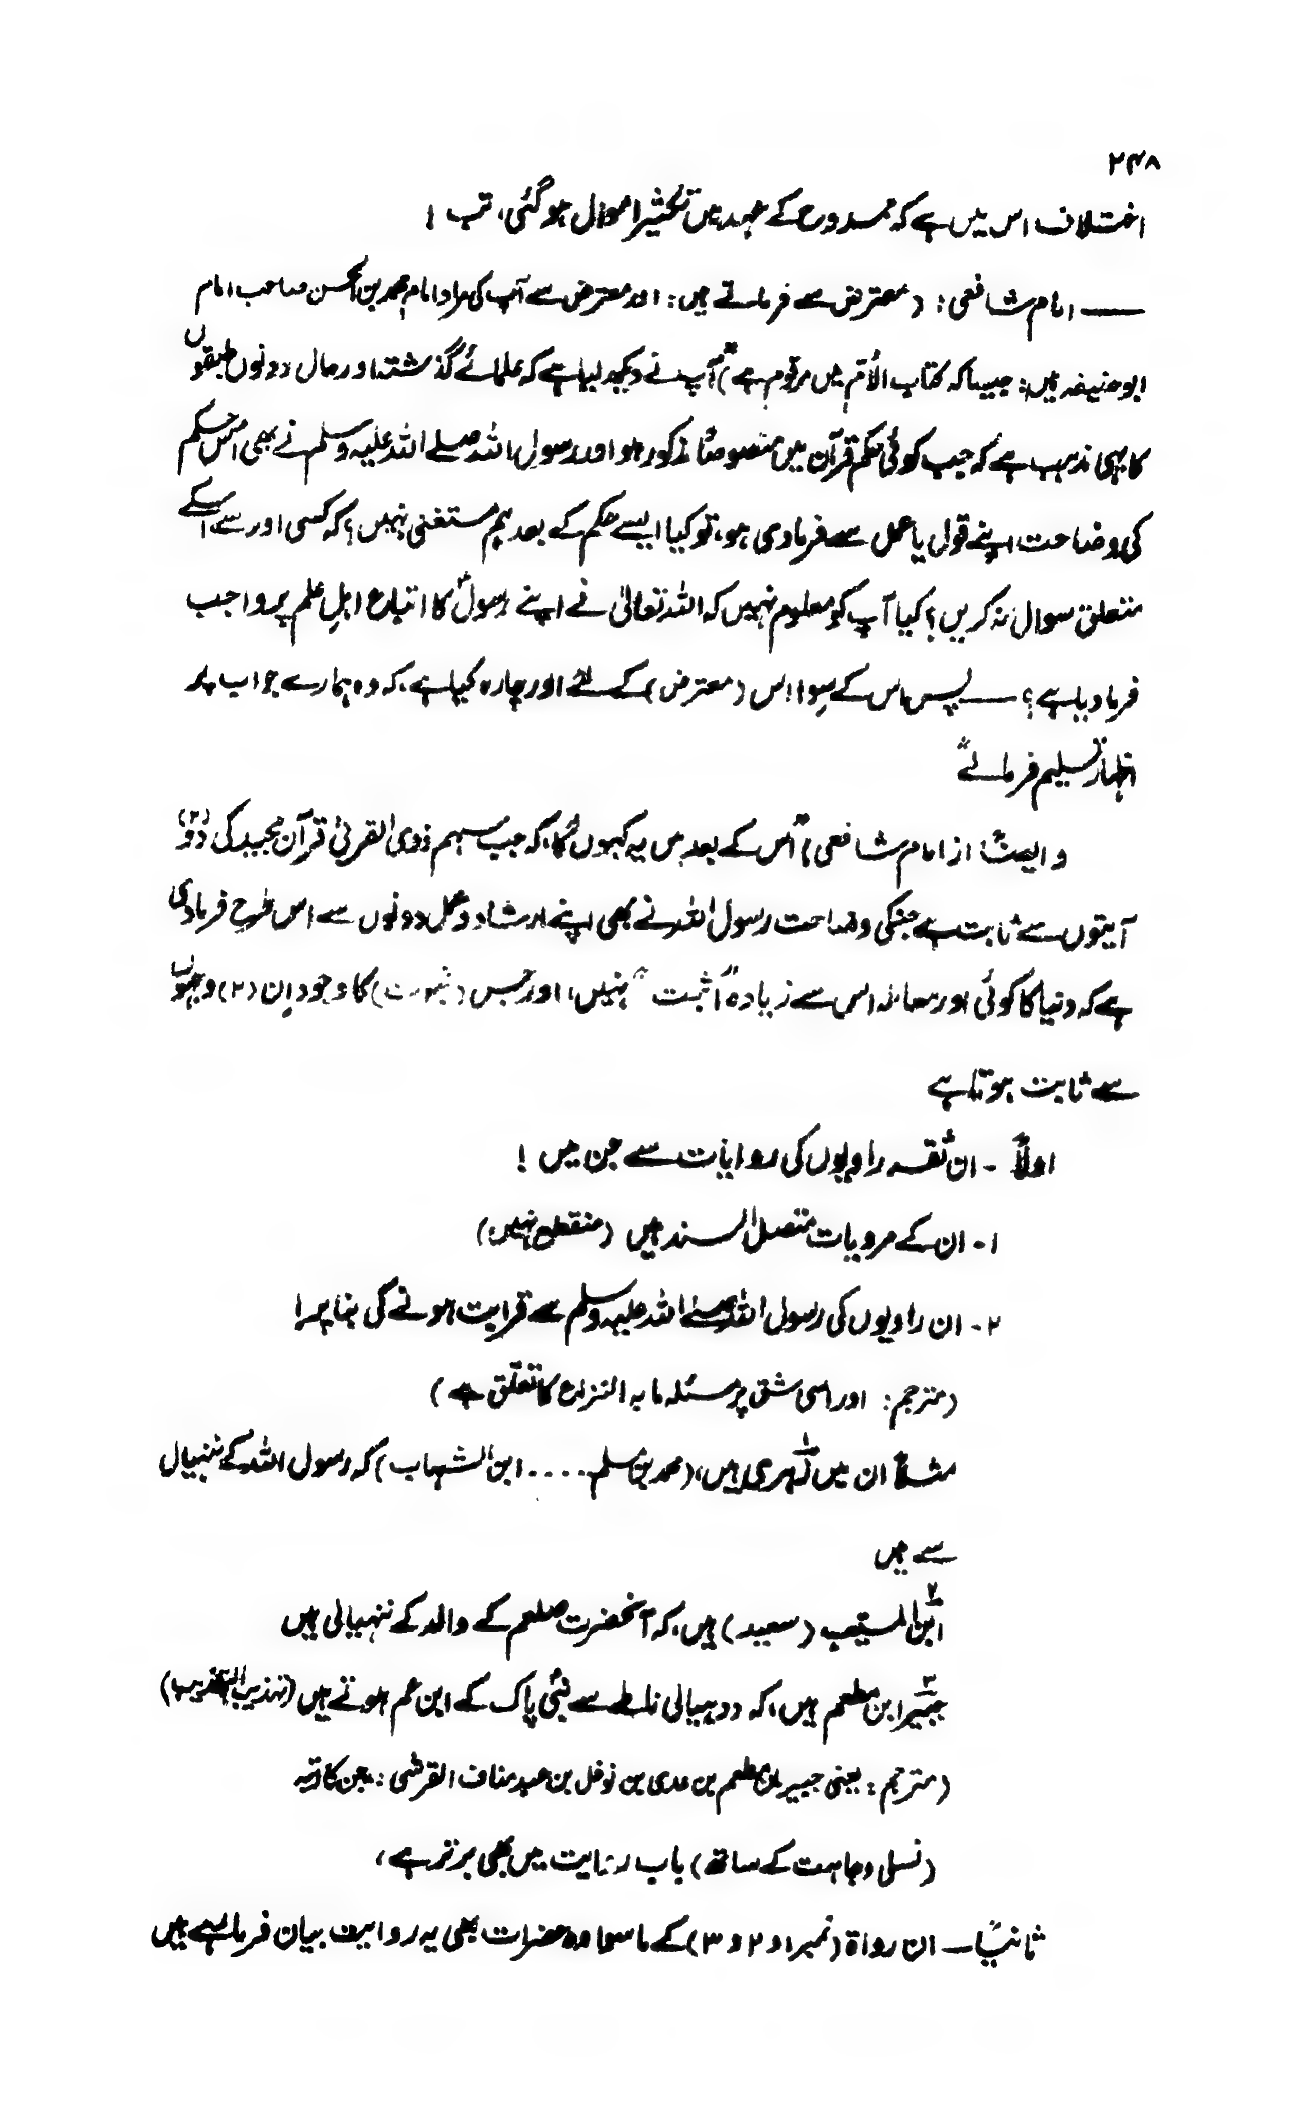 ۲۴۸
اختلاف اس میں ہے کہ ممدوح کے عہد میں تکثیر اموال ہو گئی، تب !
—— امام شافعی: (معترض سے فرماتے ہیں: اور معترض سے آپ کی مراد امام محمد بن الحسن صاحب امام
ابو حنیفہ ہیں: جیسا کہ کتاب الأم میں مرقوم ہے) "آپ نے دیکھ لیا ہے کہ علمائے گذشتہ اور حال دونوں طبقوں
کا یہی مذہب ہے کہ جب کوئی حکم قرآن میں منصوصاً مذکور ہو اور رسول اللہ صلے اللہ علیہ وسلم نے بھی اس حکم
کی وضاحت اپنے قول یا عمل سے فرما دی ہو، تو کیا ایسے حکم کے بعد ہم مستغنی نہیں؟ کہ کسی اور سے اسکے
متعلق سوال نہ کریں؟ کیا آپ کو معلوم نہیں کہ اللہ تعالیٰ نے اپنے رسولؐ کا اتباع اہلِ علم پر واجب
فرما دیا ہے؟ —— پس اس کے سوا اس (معترض) کے لئے اور چارہ کیا ہے، کہ وہ ہمارے جواب پر
اظہار تسلیم فرمالے"
و ایضًا از امام شافعی) "اس کے بعد میں یہ کہوں گا، کہ جب سہم ذوی القربیٰ قرآن مجید کی دو (۲)
آیتوں سے ثابت ہے جنکی وضاحت رسول اللہ نے بھی اپنے ارشاد و عمل دونوں سے اس طرح فرما دی
ہے کہ دنیا کا کوئی اور معاملہ اس سے زیادہ "اثبت" نہیں، اور جس (ثبوت) کا وجود اِن (۲) وجہوں
سے ثابت ہوتا ہے
اولاً - ان ثقہ راویوں کی روایات سے جن میں !
۱ - ان کے مرویات متصل السند ہیں (منقطع نہیں)
۲ - ان راویوں کی رسول اللہ صلے اللہ علیہ وسلم سے قرابت ہونے کی بنا پر!
(مترجم: اور اسی شق پر مسئلہ ما بہ النزاع کا تعلّق ہے)
مثلاً ان میں ۱ زہری ہیں، (محمد بن مسلم .... ابن الشہاب) کہ رسول اللہ کے ننہیال
سے ہیں
۲ ابن المسیّب (سعید) ہیں، کہ آنحضرت صلعم کے والد کے ننہیالی ہیں
۳ جبیر ابن مطعم ہیں، کہ ددہیالی ناطے سے نبیؐ پاک کے ابن عم ہوتے ہیں (تہذیب التہذیب)
(مترجم: یعنی جبیر بن مطعم بن عدی بن نوفل بن عبد مناف القرشی: جن کا رتبہ
(نسلی وجاہت کے ساتھ) باب روایت میں بھی برتر ہے،
ثانیاً — ان رواۃ (نمبر ۱ و ۲ و ۳) کے ماسوا وہ حضرات بھی یہ روایت بیان فرما رہے ہیں